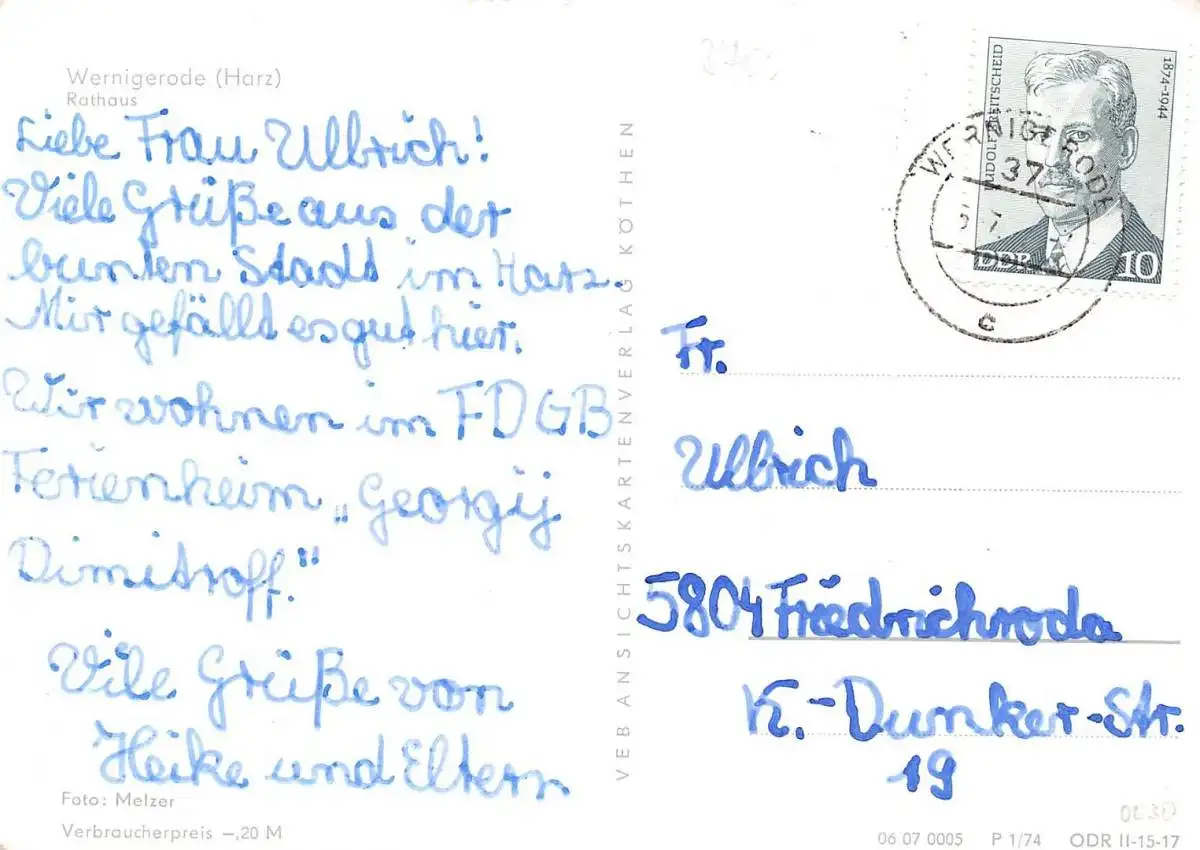 Wernigerode (Harz)
Rathaus
Liebe Frau Ullbrich!
Viele Grüße aus der
bunten Stadt im Harz.
Mir gefällt es gut hier.
Wir wohnen im FDGB
Ferienheim „Georgij
Dimitroff."
Vile Grüße von
Heike und Eltern
Foto: Melzer
Verbraucherpreis –,20 M
VEB ANSICHTSKARTENVERLAG KÖTHEN
RUDOLF BREITSCHEID
1874-1944
DDR 10
WERNIGERODE
37
c
Fr.
Ullbrich
5804 Friedrichroda
K.-Dunker-Str.
19
06 07 0005 P 1/74 ODR II-15-17